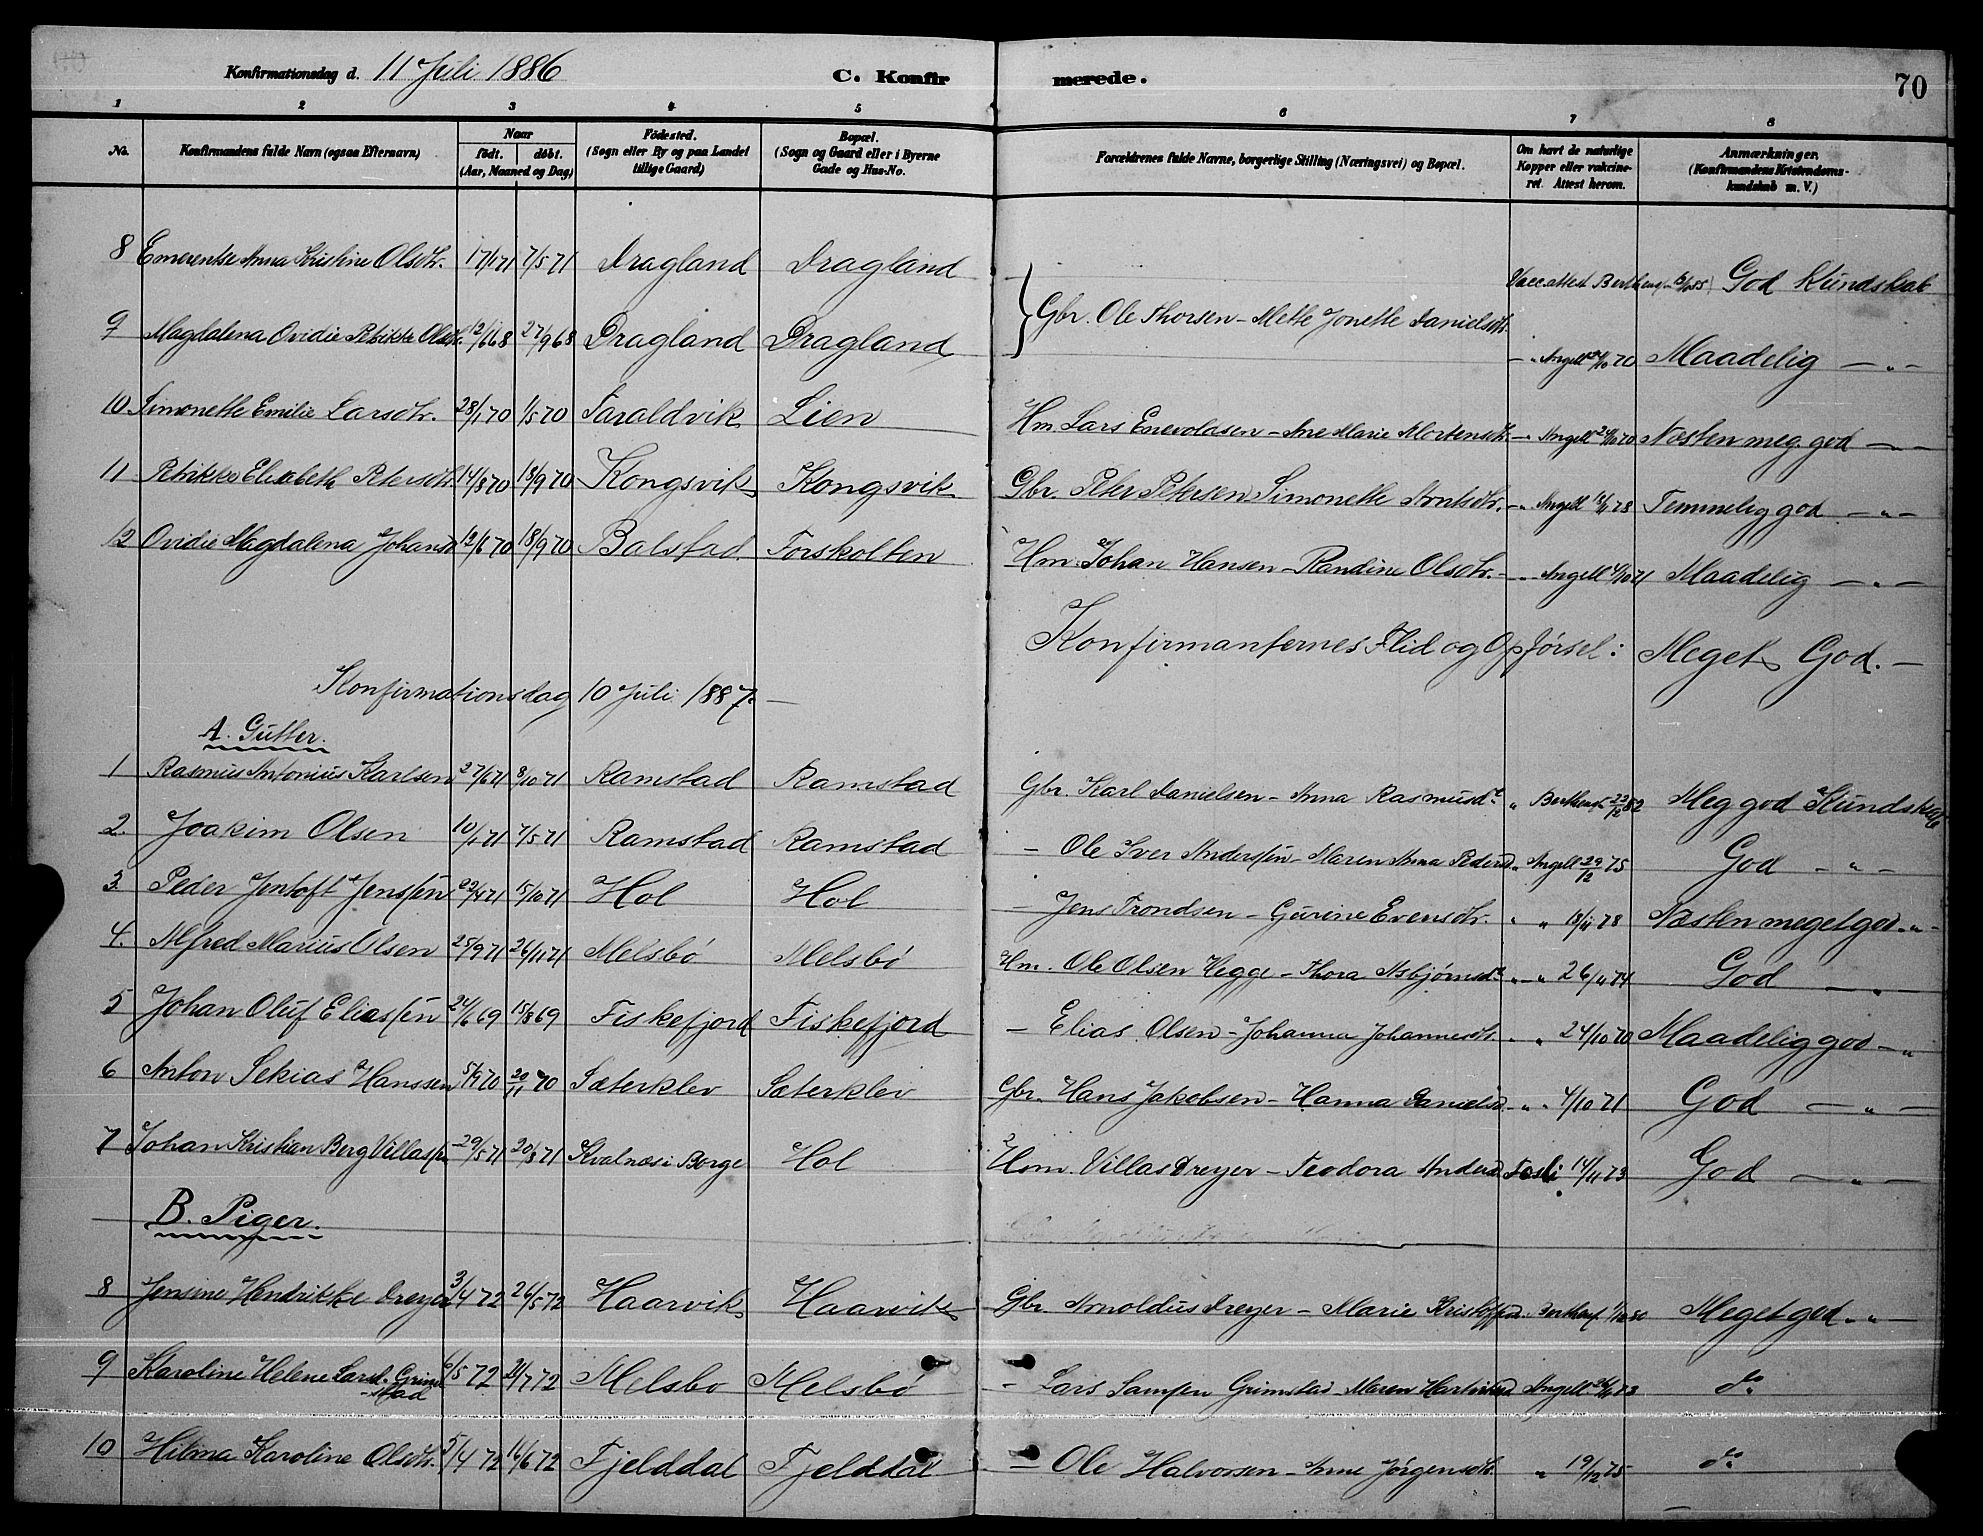 Konfirmationsdag d. 11 Juli 1886 C. Konfirmerede. 70
1 2 3 4 5 6 7 8
No. Konfirmandens fulde Navn (ogsaa Efternavn) Naar født. døbt. (Aar, Maaned og Dag) Födested. (Sogn eller By og paa Landet tillige Gaard) Bopæl. (Sogn og Gaard eller i Byerne Gade og Hus-No. Forældrenes fulde Navne, borgerlige Stilling (Næringsvei) og Bopæl. Om havt de naturlige Kopper eller vakcineret. Attest herom. Anmærkninger. (Konfirmandens Kristendomskundskab m. V.)
8 Emerentse Anna Kristine Olsdtr. 17/1 71 7/5 71 Dragland Dragland Vacc.attest God Kundskab
Gbr. Ole Thorsen - Mette Jonette Danielsdtr.
9 Magdalena Ovidie Petrikke Olsdtr. 12/6 68 27/9 68 Dragland Dragland - " Angell 24/10 70 Maadelig - " -
10 Simonette Emilie Larsdtr. 28/1 70 1/5 70 Taraldvik Lien Hm. Lars Enevoldsen - Ane Marie Mortensdtr. - " Angell 24/10 70 Næsten meg. god - " -
11 Petrikke Elisabeth Petersdtr 14/8 70 18/9 70 Kongsvik Kongsvik Gbr. Peter Petersen - Simonette Arntsdtr. - " Angell 18/11 78 Temmelig god - " -
12 Ovidie Magdalena Johansd 12/6 70 18/9 70 Balstad Forskolten Hm. Johan Hansen - Randine Olsdtr. - " Angell 4/10 71 Maadelig - " -
Konfirmanternes Flid og Opførsel: Meget God. -
Konfirmationsdag 10 Juli 1887. -
A. Gutter.
1 Rasmus Antonius Karlsen 27/6 71 8/10 71 Ramstad Ramstad Gbr. Karl Danielsen - Anna Rasmusdt. " 22/12 82 Meg god Kundskab
2. Joakim Olsen 10/1 71 7/5 71 Ramstad Ramstad - Ole Iver Anderssen - Maren Anna Pedersd " Angell 29/12 75 God - " -
3. Peder Jentoft Jenssen 22/4 71 15/10 71 Hol Hol - Jens Trondsen - Gurine Evensdtr. " " 18/11 78 Næsten meget god - " -
4. Alfred Marius Olsen 25/9 71 26/11 71 Melsbö Melsbö Hm. Ole Olsen Hegge - Thora Asbjörnsdt. - " " 26/11 84 God - "
5 Johan Oluf Eliassen 24/6 69 15/8 69 Fiskefjord Fiskefjord - Elias Olsen - Johanna Johannesdtr. " " 24/10 70 Maadelig god - "
6 Anton Sekias Hanssen 5/9 70 20/11 70 Sæterklev Sæterklev Gbr. Hans Jakobsen - Hanna Danielsd - " " 4/10 71 God - " -
7 Johan Kristian Berg Villassen 29/5 71 20/8 71 Kvalnæs i Borge Hol Hm. Villas Dreyer - Teodora Andersd 14/11 73 God - " -
B. Piger.
8 Jensine Hendrikke Dreyer 3/4 72 26/5 72 Haarvik Haarvik Gbr Arnoldus Dreyer - Marie Meget god - " -
9 Karoline Helene Larsd. Grimstad 6/5 72 21/7 72 Melsbö Melsbö - Lars Grimstad - Maren Angell do
10 Hilma Karoline Olsdtr. 5/4 72 16/6 72 Fjelddal Fjelddal - Ole Halvorsen - Anne Jörgensdtr. " 19/12 75 do